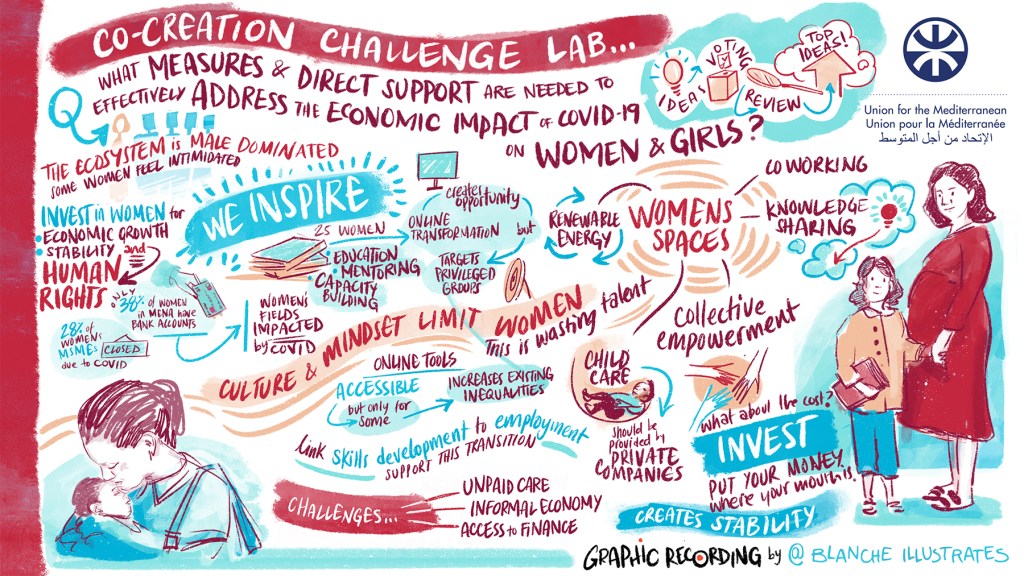 CO-CREATION CHALLENGE LAB...
Q
WHAT MEASURES & DIRECT SUPPORT ARE NEEDED TO
EFFECTIVELY ADDRESS THE ECONOMIC IMPACT OF COVID-19
ON WOMEN & GIRLS?
IDEAS
VOTING
REVIEW
TOP
IDEAS!
Union for the Mediterranean
Union pour la Méditerranée
الإتحاد من أجل المتوسط
THE ECOSYSTEM is MALE DOMINATED
SOME WOMEN FEEL INTIMIDATED
INVEST in WOMEN for
ECONOMIC GROWTH
STABILITY and
HUMAN
RIGHTS
ONLY
38% OF WOMEN
IN MENA have
BANK ACCOUNTS
28% of
WOMEN'S
MSMEs CLOSED
due to COVID
WE INSPIRE
25 WOMEN
EDUCATION
MENTORING
CAPACITY
BUILDING
WOMEN'S
FIELDS
IMPACTED
by COVID
creates
opportunity
ONLINE
TRANSFORMATION
but
TARGETS
PRIVILEGED
GROUPS
RENEWABLE
ENERGY
WOMENS
SPACES
CO WORKING
KNOWLEDGE
SHARING
collective
empowerment
CULTURE & MINDSET LIMIT WOMEN
This is washing talent
ONLINE TOOLS
ACCESSIBLE
but only for
some
INCREASES EXISTING
INEQUALITIES
Link skills development to employment
SUPPORT THIS TRANSITION
CHILD
CARE
should be
provided by
PRIVATE
COMPANIES
what about the cost?
INVEST
PUT YOUR MONEY
where your mouth is
CREATES STABILITY
CHALLENGES...
UNPAID CARE
INFORMAL ECONOMY
ACCESS to FINANCE
GRAPHIC RECORDING by @ BLANCHE ILLUSTRATES